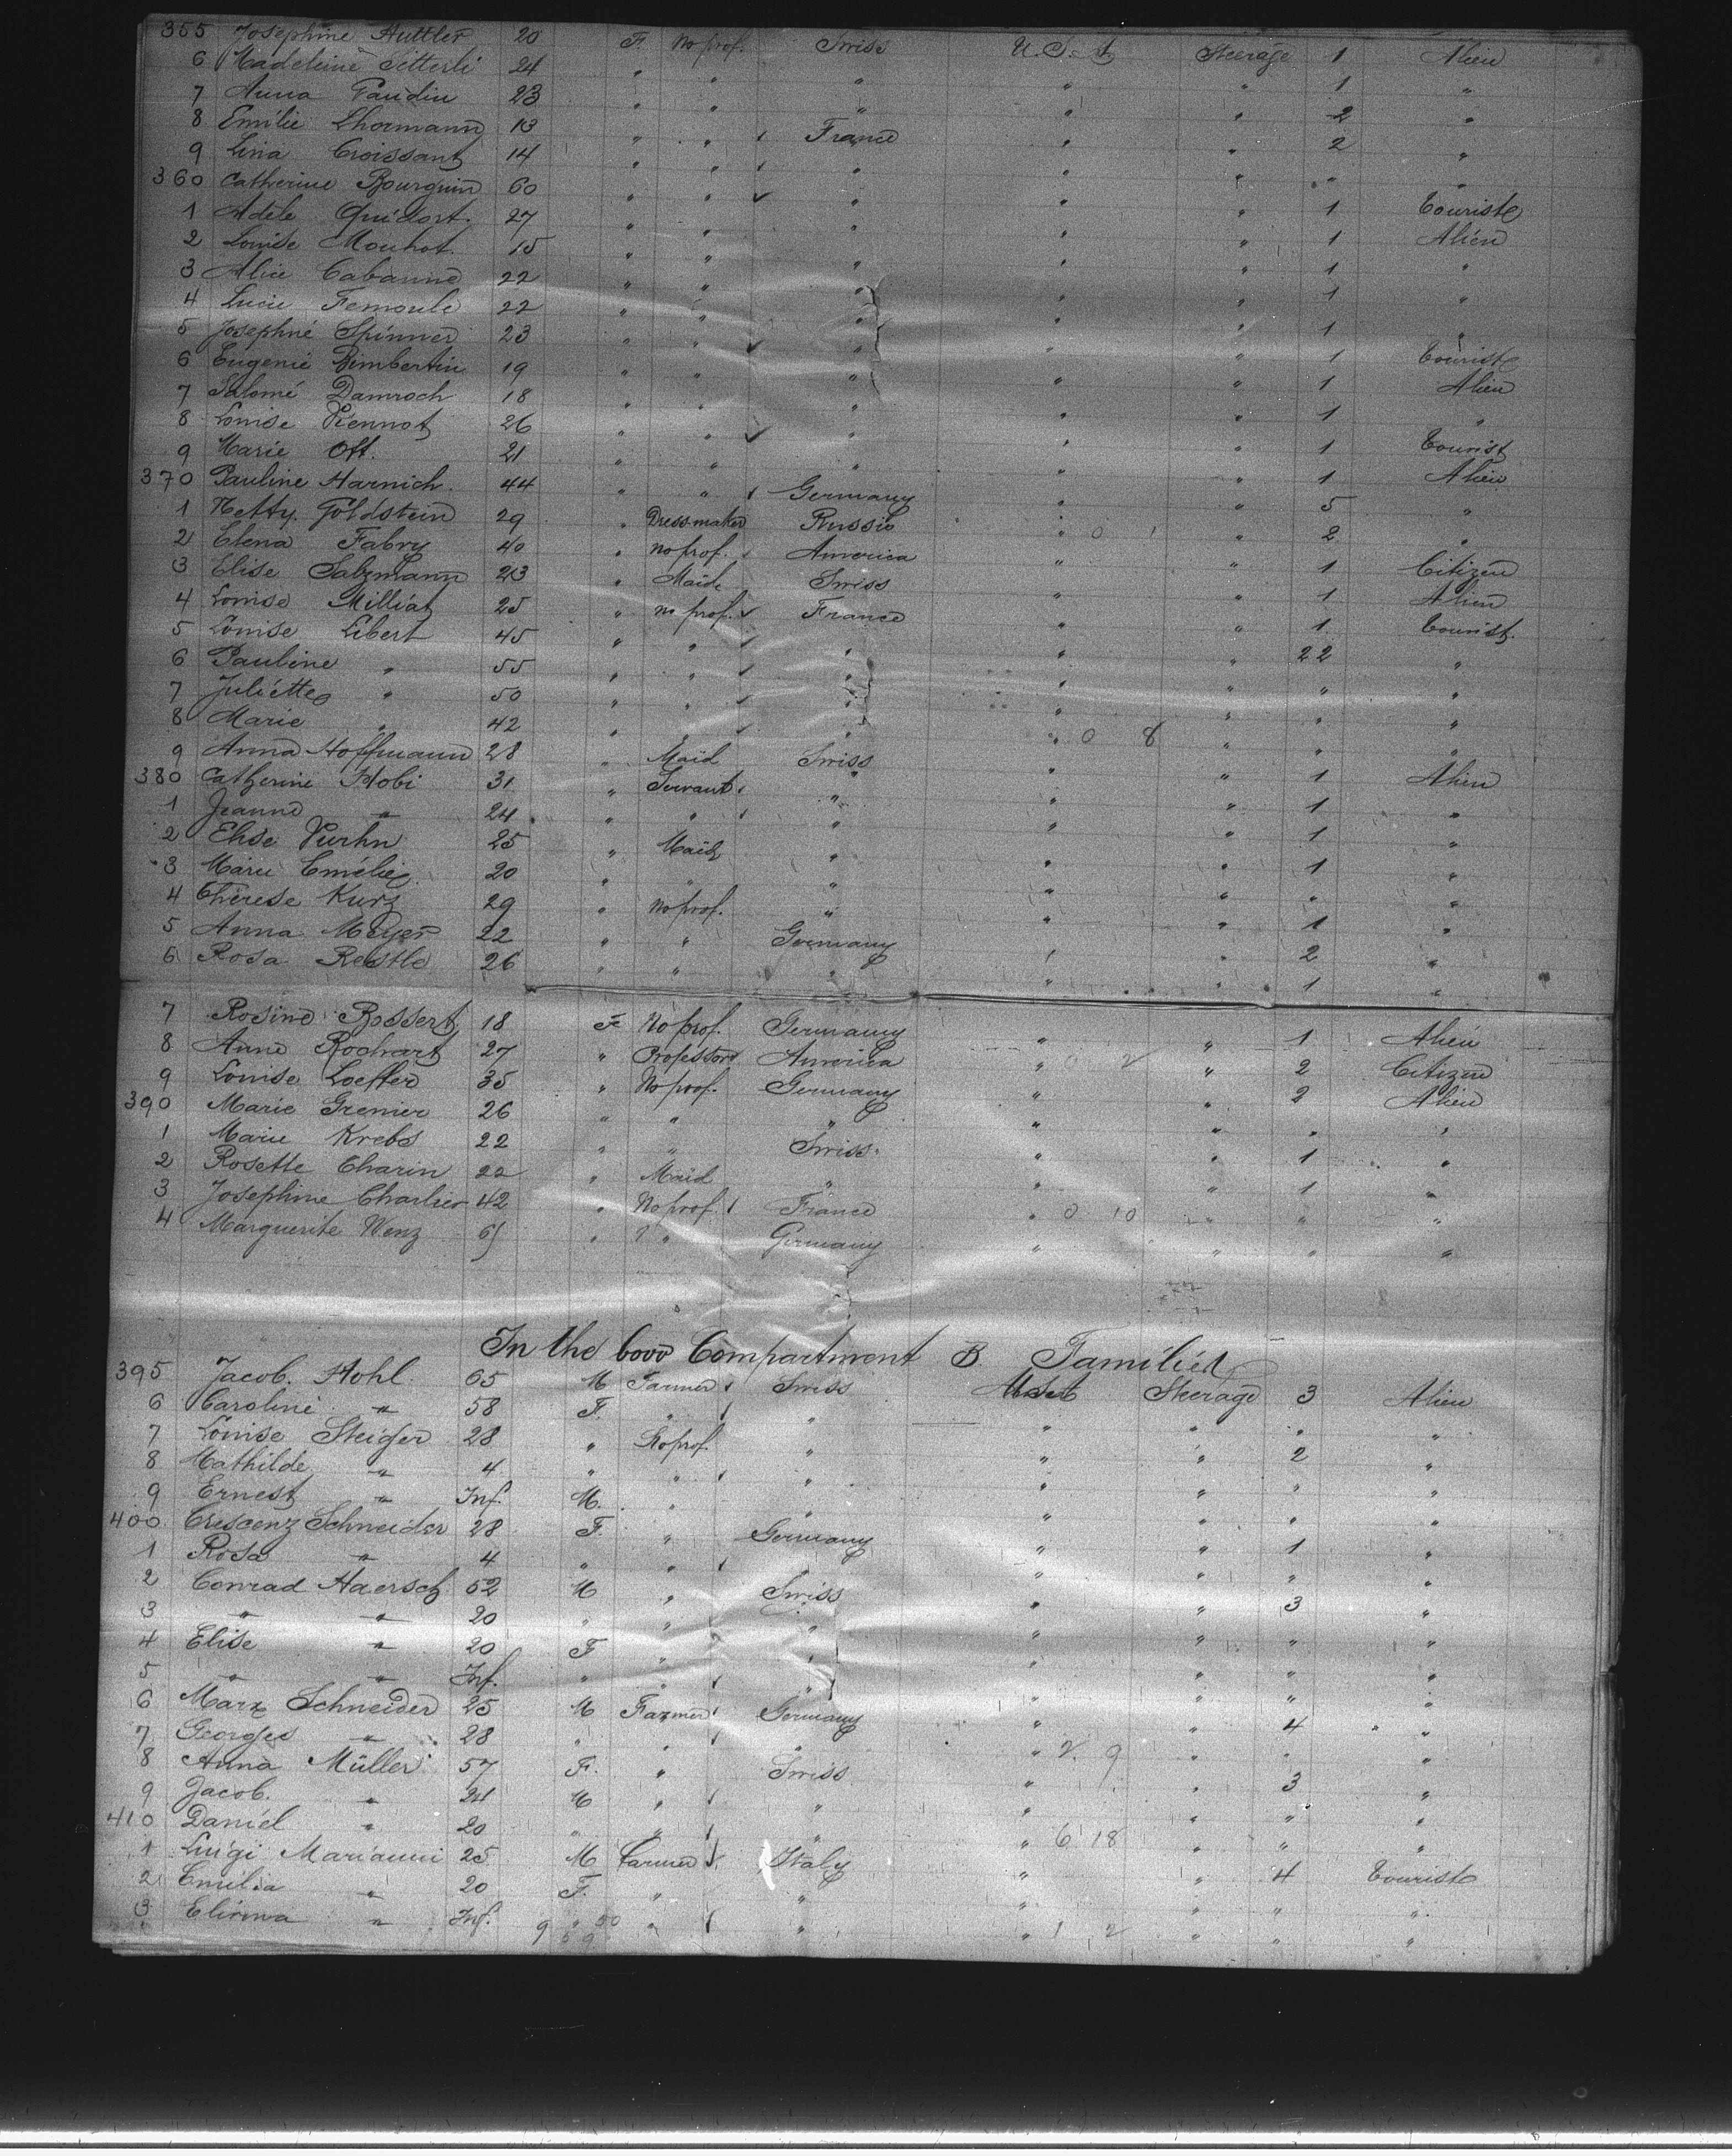 355 Josephine Huttler 20 F. No prof. Swiss U.S.A. Steerage 1 Alien
6 Madeleine Sitterli 24 " " " " " 1 "
7 Anna Gaudin 23 " " " " " 2 "
8 Emilie Lhormann 13 " " France " " 2 "
9 Lina Croissant 14 " " " " " " "
360 Catherine Bourquin 60 " " " " " 1 Tourist
1 Adèle Quidort 27 " " " " " 1 Alien
2 Louise Mouhot 15 " " " " " 1 "
3 Alice Cabanne 22 " " " " " 1 "
4 Lucie Femoule 22 " " " " " 1 "
5 Josephine Spinner 23 " " " " " 1 Tourist
6 Eugenie Bimbertin 19 " " " " " 1 Alien
7 Salomé Damroch 18 " " " " " 1 "
8 Louise Kennot 26 " " " " " 1 Tourist
9 Marie Ott. 21 " " " " " 1 Alien
370 Pauline Harnich. 44 " " Germany " " 5 "
1 Netty Goldstein 29 " Dressmaker Russie " 0 1 " 2 "
2 Elena Fabry 40 " no prof. America " " 1 Citizen
3 Elise Salzmann 23 " Maid Swiss " " 1 Alien
4 Louise Milliat 25 " no prof. France " " 1 Tourist.
5 Louise Libert 45 " " " " " 22 "
6 Pauline " 55 " " " " " " "
7 Juliette " 50 " " " " " " "
8 Marie " 42 " " " " 0 8 " " "
9 Anna Hoffmann 28 " Maid Swiss " " 1 Alien
380 Catherine Hobi 31 " Servant " " " 1 "
1 Jeanne " 24 " " " " " 1 "
2 Elise Vurhn 25 " Maid " " " 1 "
3 Marie Emélie 20 " " " " " " "
4 Thérese Kurz 29 " no prof. " " " 1 "
5 Anna Meyer 22 " " Germany " " 2 "
6 Rosa Restle 26 " " " " " 1 "
7 Rosine Bossert 18 F. No prof. Germany " " 1 Alien
8 Anne Rochart 27 " Professor America " 0 2 " 2 Citizen
9 Louise Loeffer 35 " No prof. Germany " 2 Alien
390 Marie Grenier 26 " " " " " " "
1 Marie Krebs 22 " " Swiss. " " 1 "
2 Rosette Charin 22 " Maid " " " 1 "
3 Josephine Charlier 42 " No prof. France " 0 10 " " "
4 Marguerite Wenz 65 " " Germany " " " "
In the Compartment B. Familied
395 Jacob. Hohl. 65 M Farmer Swiss U.S.A. Steerage 3 Alien
6 Caroline " 58 F. " " " " " "
7 Louise Steiger 28 " No prof. " " " 2 "
8 Mathilde " 4 " " " " " " "
9 Ernest " Inf. M. " " " " " "
400 Crescenz Schneider 28 F. " Germany " " 1 "
1 Rosa " 4 " " " " " " "
2 Conrad Haersch 52 M " Swiss " " 3 "
3 " " 20 " " " " " " "
4 Elise " 20 F " " " " " "
5 " " Inf. " " " " " " "
6 Marx Schneider 25 M Farmer Germany " " 4 "
7 Georges " 28 " " " " 2 9 " " "
8 Anna Müller 57 F. " Swiss " " 3 "
9 Jacob. " 24 M " " " " " "
410 Daniel " 20 " " " " 6 18 " " "
1 Luigi Marianni 25 M Farmer Italy " " 4 Tourist
2 Emilia " 20 F. " " " " " "
3 " Inf. " " " " 1 2 " " "